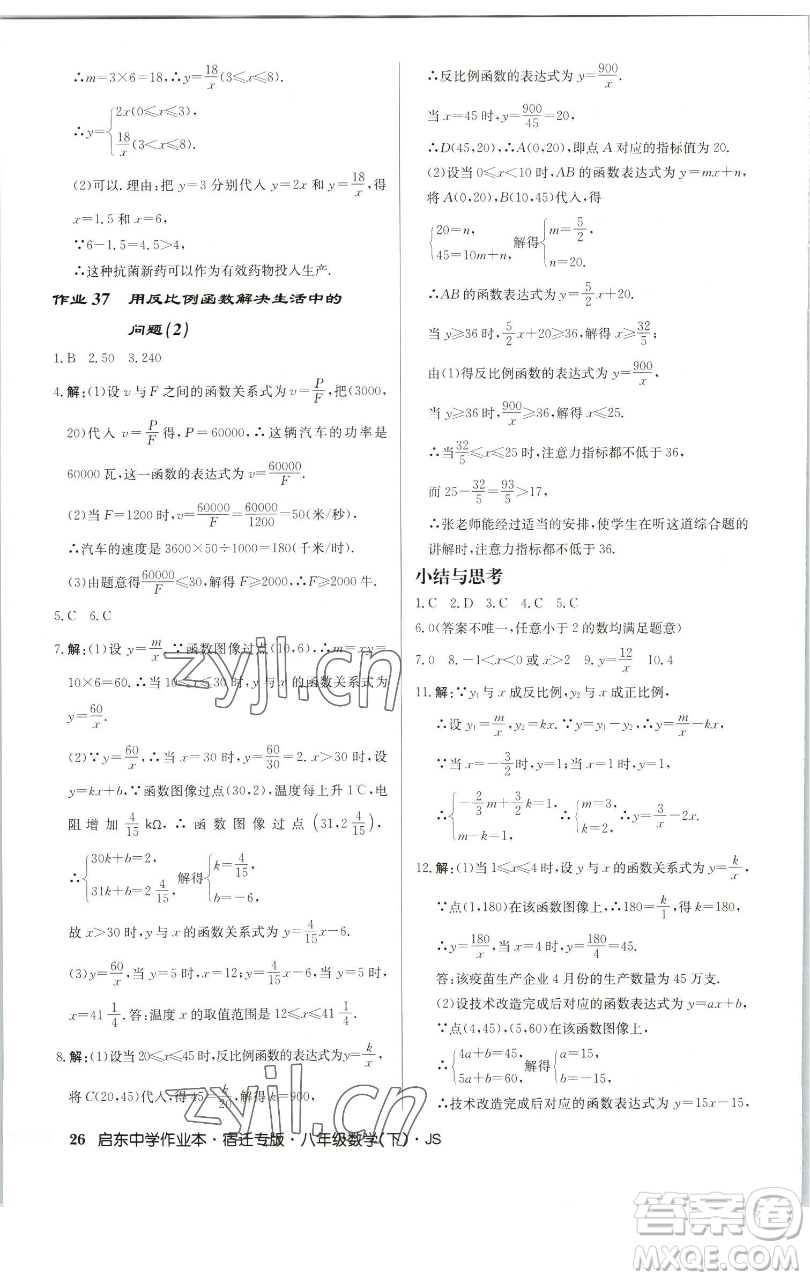 ∴m=3×6=18,∴y=18/x(3≤x≤8).
∴y={2x(0≤x≤3),
18/x(3<x≤8).
(2)可以.理由:把 y=3 分别代入 y=2x 和 y=18/x,得
x=1.5 和 x=6,
∵6-1.5=4.5>4,
∴这种抗菌新药可以作为有效药物投入生产.
作业 37 用反比例函数解决生活中的
问题(2)
1.B 2.50 3.240
4.解:(1)设 v 与 F 之间的函数关系式为 v=P/F,把(3000,
20)代入 v=P/F 得,P=60000,∴这辆汽车的功率是
60000 瓦,这一函数的表达式为 v=60000/F.
(2)当 F=1200 时,v=60000/F=60000/1200=50(米/秒),
∴汽车的速度是 3600×50÷1000=180(千米/时).
(3)由题意得60000/F≤30,解得 F≥2000,∴F≥2000 牛.
5.C 6.C
7.解:(1)设 y=m/x,∵函数图像过点(10,6),∴m=xy=
10×6=60.∴当 10≤x≤30 时,y 与 x 的函数关系式为
y=60/x.
(2)∵y=60/x,∴当 x=30 时,y=60/30=2.当 x>30 时,设
y=kx+b,∵函数图像过点(30,2),温度每上升 1℃,电
阻增加 4/15 kΩ,∴函数图像过点(31,2 4/15),
∴{30k+b=2,
31k+b=2 4/15, 解得{k=4/15,
b=-6,
故 x>30 时,y 与 x 的关系式为 y=4/15x-6.
(3)y=60/x,当 y=5 时,得 x=12;y=4/15x-6,当 y=5 时,
x=41 1/4.答:温度 x 的取值范围是 12≤x≤41 1/4.
8.解:(1)设当 20≤x≤45 时,反比例函数的表达式为y=k/x,
将 C(20,45)代入,得 45=k/20,解得 k=900,
26 启东中学作业本·宿迁专版·八年级数学(下)·JS
∴反比例函数的表达式为 y=900/x.
当 x=45 时,y=900/45=20,
∴D(45,20),∴A(0,20),即点 A 对应的指标值为 20.
(2)设当 0≤x<10 时,AB 的函数表达式为 y=mx+n,
将 A(0,20),B(10,45)代入,得
{20=n,
45=10m+n, 解得{m=5/2,
n=20,
∴AB 的函数表达式为 y=5/2x+20.
当 y≥36 时,5/2x+20≥36,解得 x≥32/5;
由(1)得反比例函数的表达式为 y=900/x.
当 y≥36 时,900/x≥36,解得 x≤25.
∴当32/5≤x≤25 时,注意力指标都不低于 36,
而 25-32/5=93/5>17,
∴张老师能经过适当的安排,使学生在听这道综合题的
讲解时,注意力指标都不低于 36.
小结与思考
1.C 2.D 3.C 4.C 5.C
6.0(答案不唯一,任意小于 2 的数均满足题意)
7.0 8.-1<x<0 或 x>2 9.y=12/x 10.4
11.解:∵y₁与 x 成反比例,y₂与 x 成正比例,
∴设 y₁=m/x,y₂=kx.∵y=y₁-y₂,∴y=m/x-kx.
∵当 x=-3/2时,y=1;当 x=1 时,y=1,
∴{-2/3m+3/2k=1,
m-k=1, ∴{m=3,
k=2, ∴y=3/x-2x.
12.解:(1)当 1≤x≤4 时,设 y 与 x 的函数关系式为 y=k/x,
∵点(1,180)在该函数图像上,∴180=k/1,得 k=180,
∴y=180/x,当 x=4 时,y=180/4=45,
答:该疫苗生产企业 4 月份的生产数量为 45 万支.
(2)设技术改造完成后对应的函数表达式为 y=ax+b,
∵点(4,45),(5,60)在该函数图像上,
∴{4a+b=45,
5a+b=60, 解得{a=15,
b=-15,
∴技术改造完成后对应的函数表达式为 y=15x-15,
zyjl.cn
zyjl.cn
答案圈
MXQE.COM